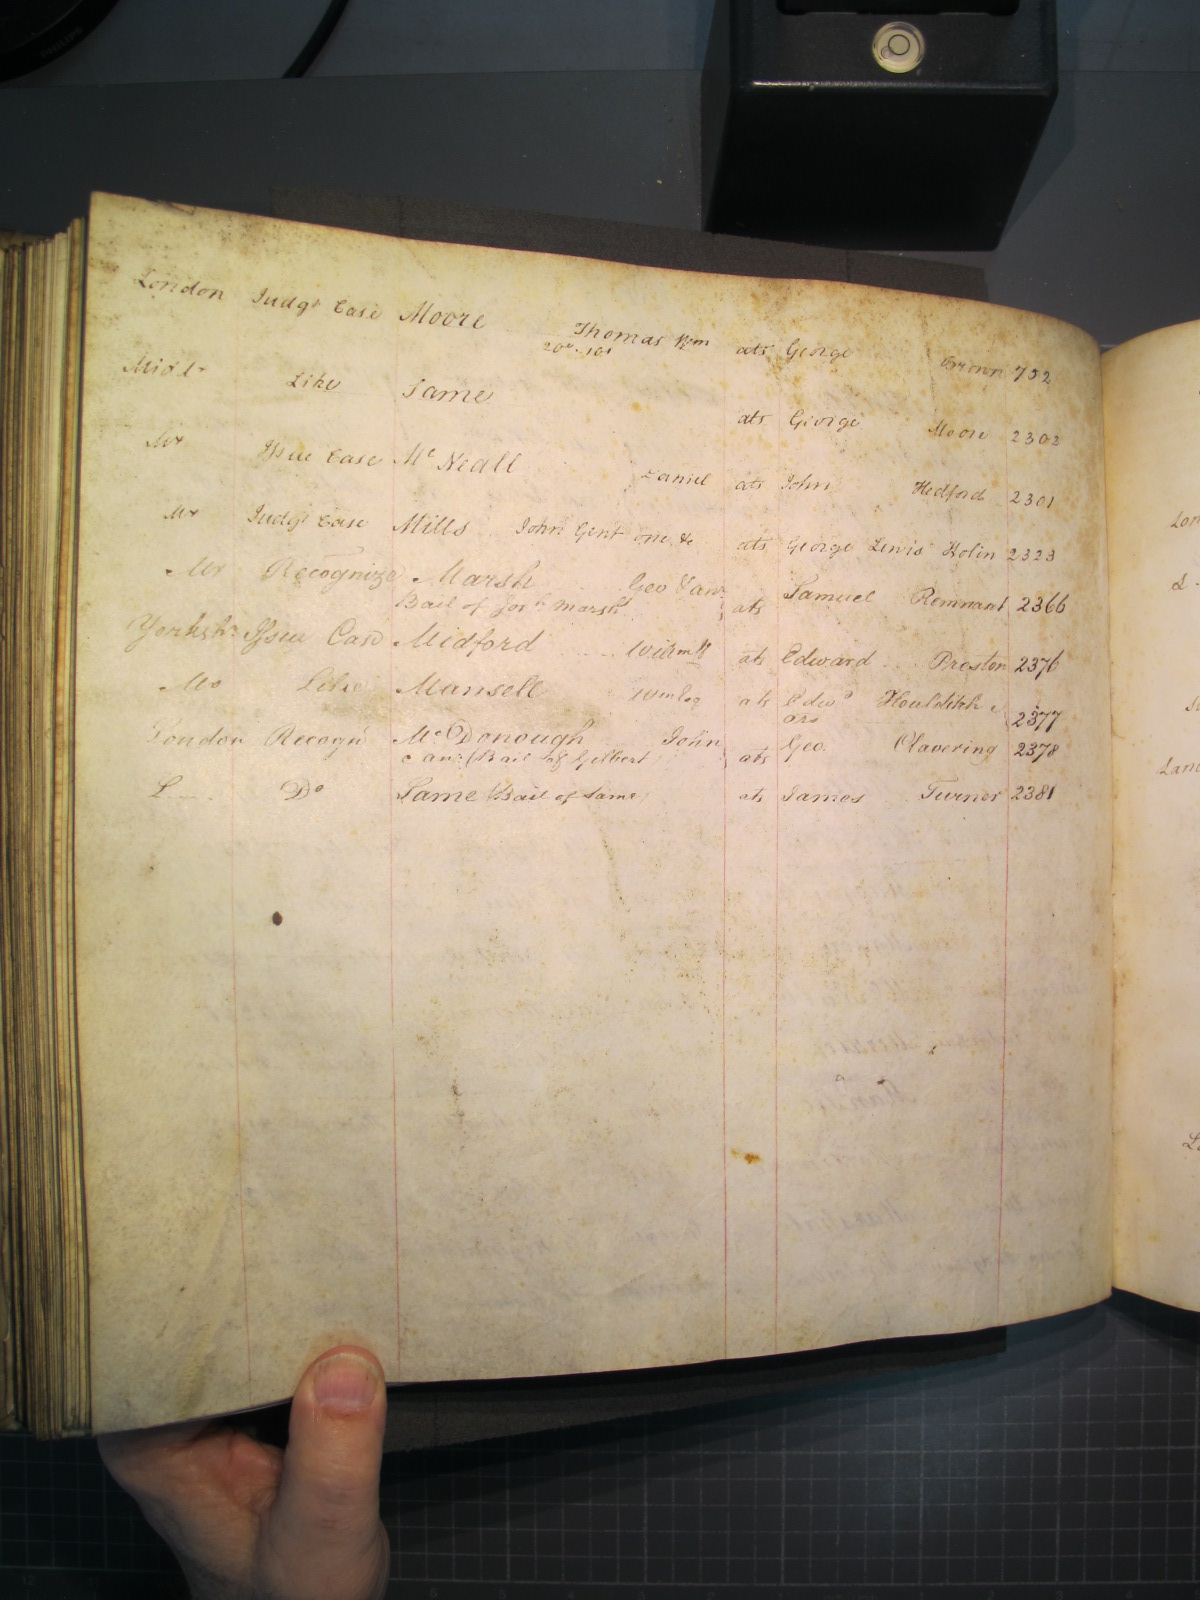 London Judgt Case Moore Thomas Wm ats George Brown 752
20th 101
Middx Like Same ats George Moore 2302
Mx Issue Case McNeall Daniel ats John Hedford 2301
Mx Judgt Case Mills John Gent one &c ats George Lewis Holin 2323
Mx Recognize Marsh Geo & anr Samuel Remnant 2366
Bail of Josh Marsh ats
Yorksh Issue Case Midford Willm ats Edward Preston 2376
Mo Like Mansell Wm Esq ats Edwd Houlditch & 2377
ors
London Recogn McDonough John Geo Clavering 2378
& anr (Bail of Gilbert ats
L Do Same (Bail of Same) ats James Turner 2381